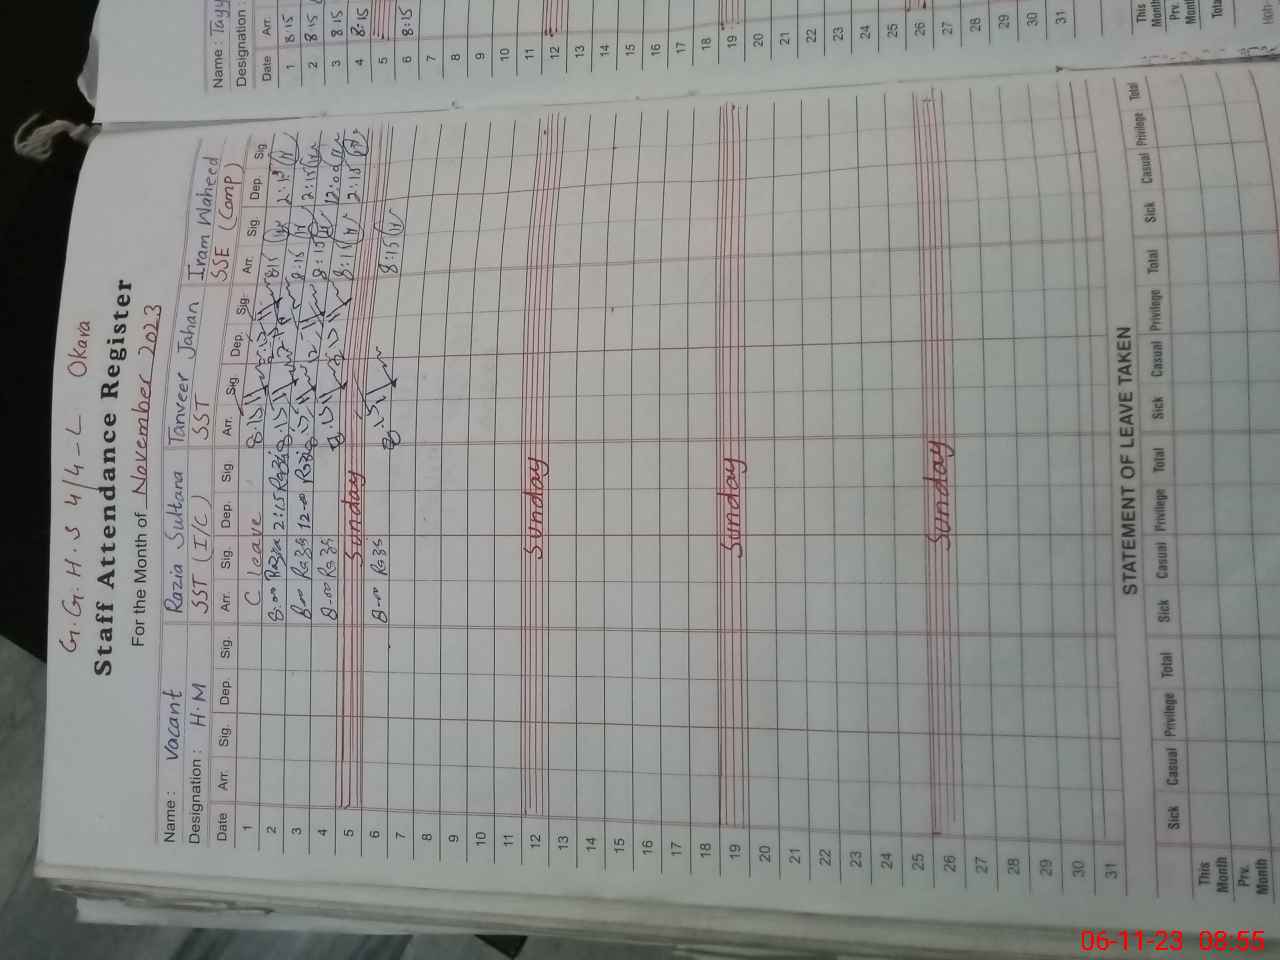 G.G.H.S 4/4-L Okara
Staff Attendance Register
For the Month of November 2023
Name : Vacant Razia Sultana Tanveer Jahan Iram Waheed
Designation : H.M SST (I/C) SST SSE (Comp)
Date Arr. Sig. Dep. Sig. Arr. Sig. Dep. Sig Arr. Sig. Dep. Sig. Arr. Sig. Dep. Sig
1 C leave 8:15 8:15
2 8:00 Razia 2:15 8:15 8:15 2:15
3 8:00 12:00 8:15 12:00
4 8:00 8:15 8:15 2:15
5 Sunday
6 8:00 8:15 8:15
7
8
9
10
11
12 Sunday
13
14
15
16
17
18
19 Sunday
20
21
22
23
24
25
26 Sunday
27
28
29
30
31
STATEMENT OF LEAVE TAKEN
Sick Casual Privilege Total Sick Casual Privilege Total Sick Casual Privilege Total Sick Casual Privilege Total
This Month
Prv. Month
Name : Tayy
Designation :
Date Arr.
1 8:15
2 8:15
3 8:15
4 8:15
5
6 8:15
7
8
9
10
11
12
13
14
15
16
17
18
19
20
21
22
23
24
25
26
27
28
29
30
31
This Month
Prv. Mont
Tota
06-11-23 08:55